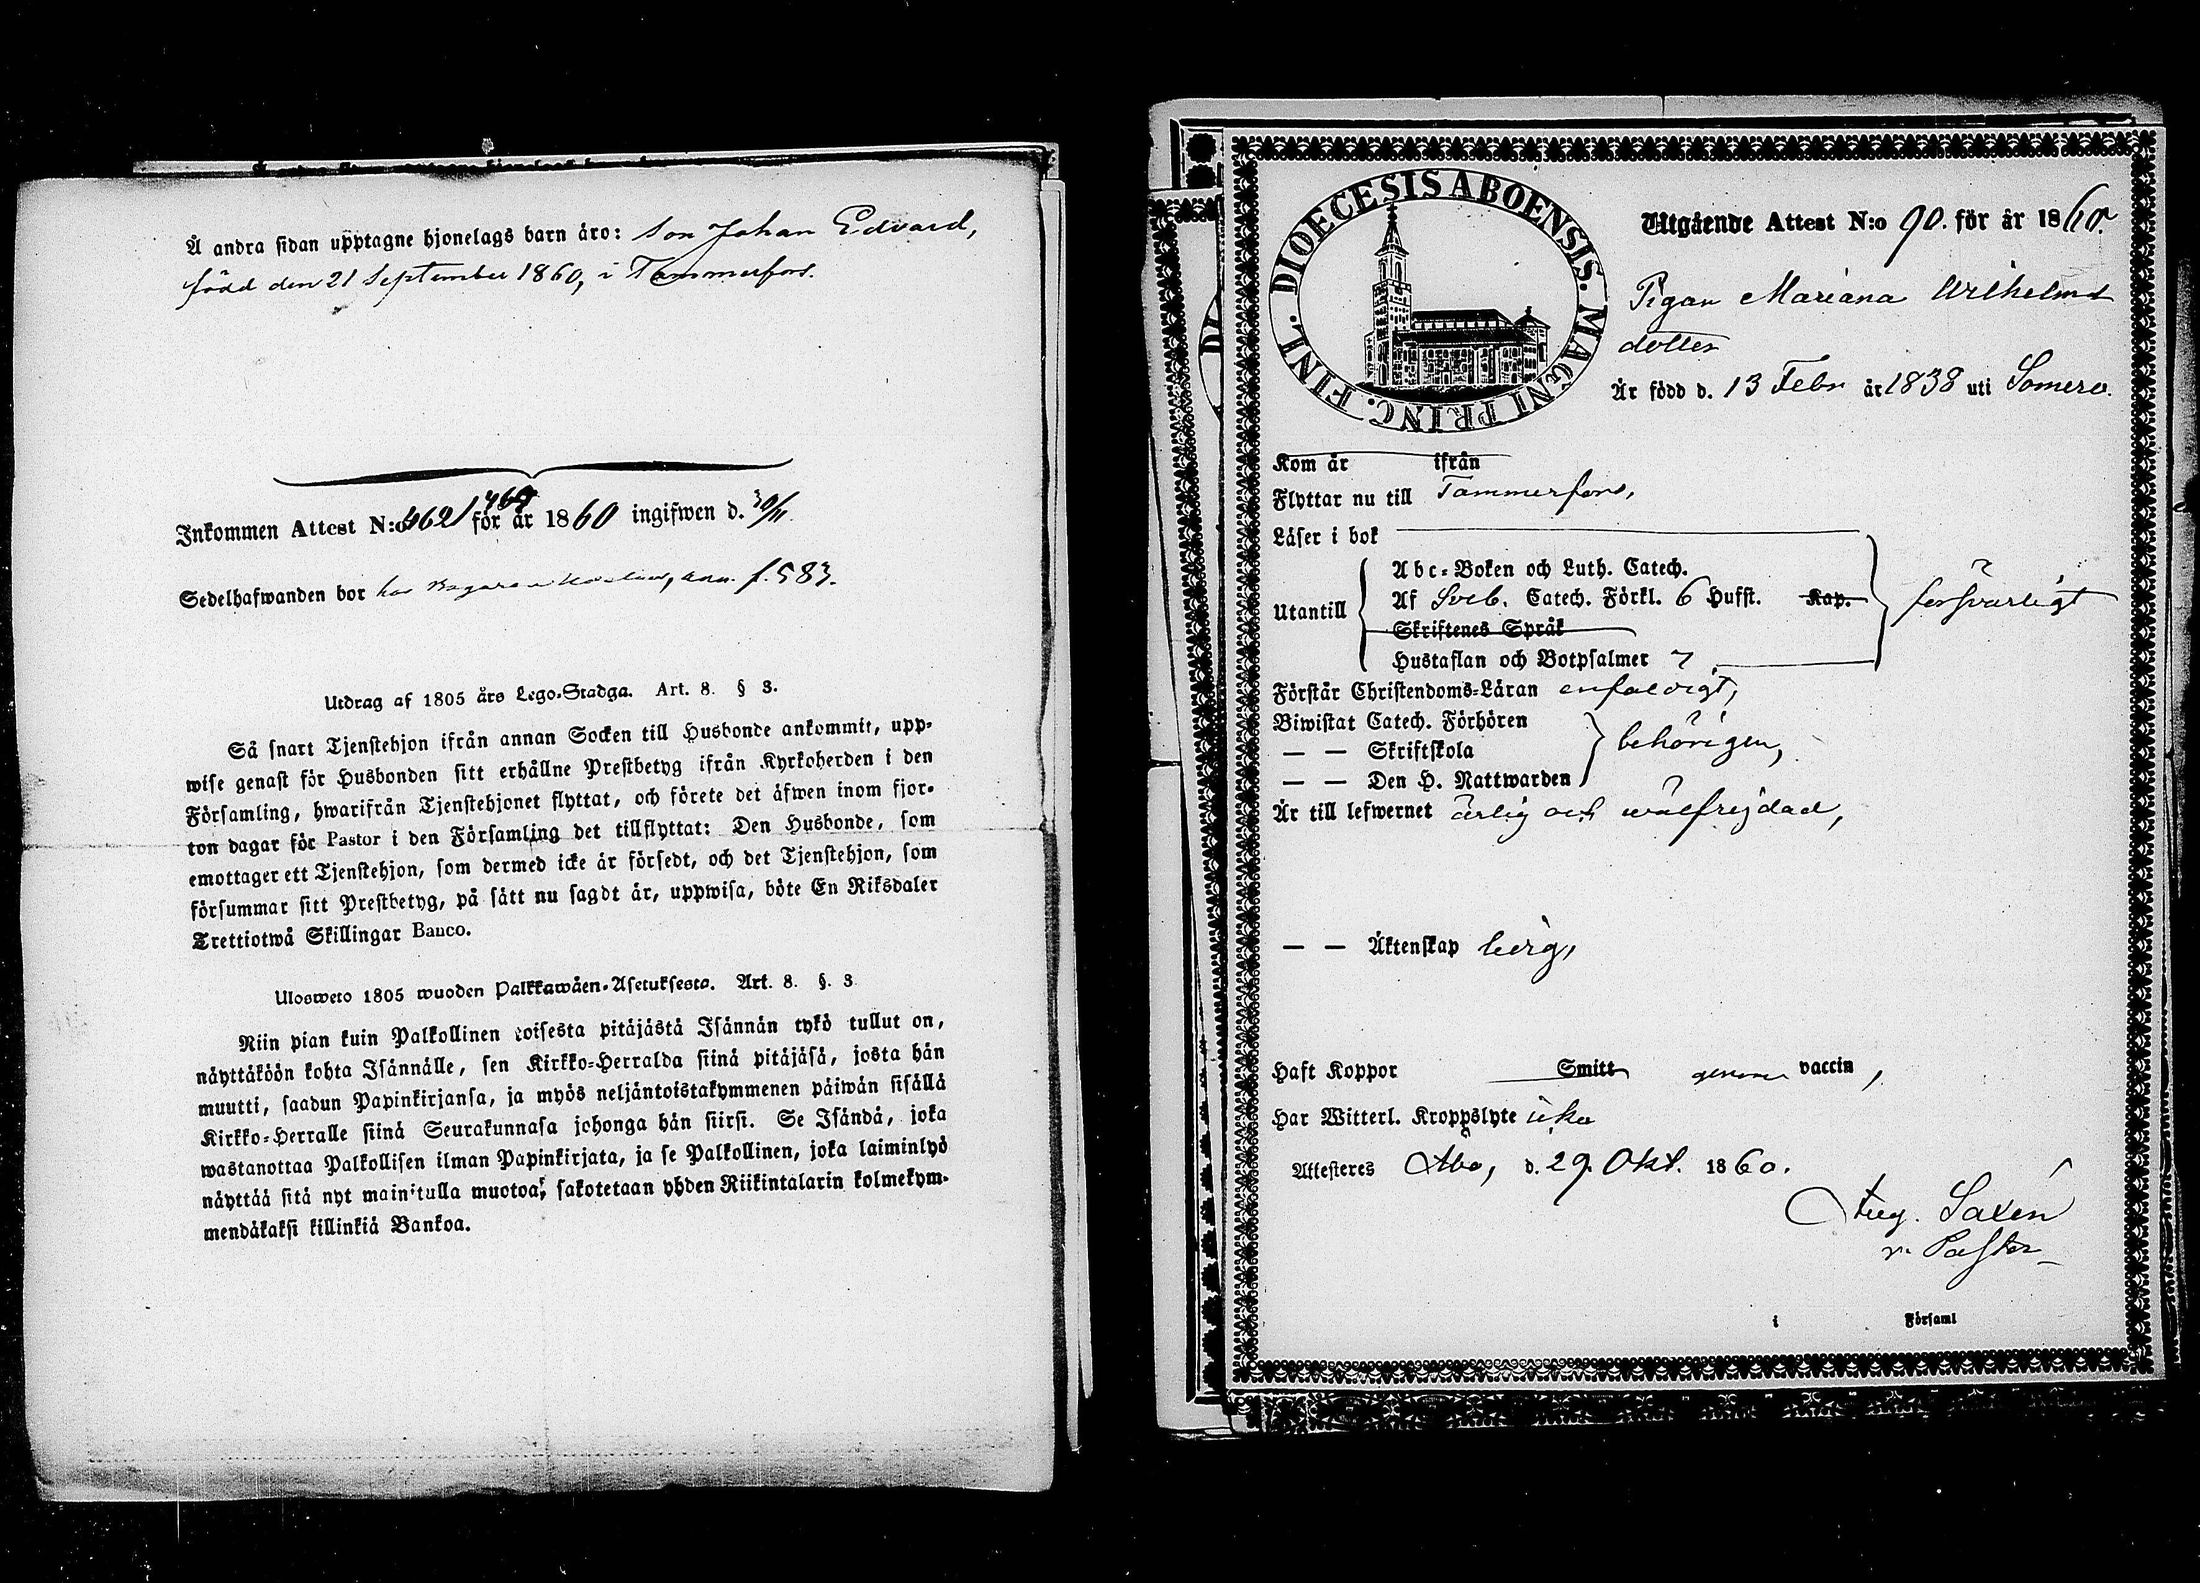 Å andra sidan upptagne hjonelags barn äro: Son Johan Edvard,
född den 21 September 1860, i Tammerfors.
Inkommen Attest N:o 462 för år 1860 ingifwen d. 30/11.
Sedelhafwanden bor hos f. 583.
Utdrag af 1805 års Lego-Stadga. Art. 8. § 3.
Så snart Tjenstehjon ifrån annan Socken till Husbonde ankommit, upp-
wise genast för Husbonden sitt erhållne Prestbetyg ifrån Kyrkoherden i den
Församling, hwarifrån Tjenstehjonet flyttat, och förete det äfwen inom fjor-
ton dagar för Pastor i den Församling det tillflyttat: Den Husbonde, som
emottager ett Tjenstehjon, som dermed icke är försedt, och det Tjenstehjon, som
försummar sitt Prestbetyg, på sätt nu sagdt är, uppwisa, böte En Riksdaler
Trettiotwå Skillingar Banco.
Ulosweto 1805 wuoden Palkkawäen-Asetuksesta. Art. 8. §. 3
Niin pian kuin Palkollinen toisesta pitäjästä Isännän tykö tullut on,
näyttäköön kohta Isännälle, sen Kirkko-Herralda siinä pitäjäsä, josta hän
muutti, saadun Papinkirjansa, ja myös neljäntoistakymmenen päiwän sisällä
Kirkko-Herralle siinä Seurakunnasa johonga hän siirsi. Se Isändä, joka
wastanottaa Palkollisen ilman Papinkirjata, ja se Palkollinen, joka laiminlyö
näyttää sitä nyt mainitulla muotoa, sakotetaan yhden Riikintalarin kolmekym-
mendäkaksi killinkiä Bankoa.
DIOECESIS ABOENSIS. MAGNI PRINC. FINL.
Utgående Attest N:o 90. för år 1860.
Pigan Mariana Wilhelms
dotter
Är född d. 13 Febr år 1838 uti Somero.
Kom år ifrån
Flyttar nu till Tammerfors,
Läser i bok
Utantill
Abc-Boken och Luth. Catech.
Af Sveb. Catech. Förkl. 6 Hufst. Kap.
Skriftenes Språk
Hustaflan och Botpsalmer 7
försvarligt
Förstår Christendoms-Läran enfaldigt,
Biwistat Catech. Förhören
— — Skriftskola
— — Den H. Nattwarden
behörigen,
Är till lefwernet ärlig och wälfrejdad,
— — Äktenskap ledig,
Haft Koppor Smitt genom vaccin,
Har Witterl. Kroppslyte icke
Attesteres Åbo, d. 29. Okt. 1860.
Aug. Saxén
v. Pastor
i Församl